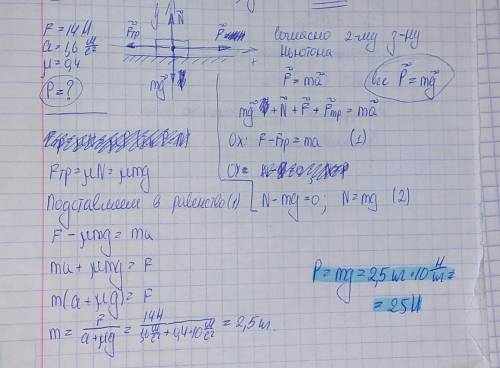 F = 14 Н
a = 1,6 м/с²
μ = 0,4
P = ?
y N⃗
F⃗тр F⃗
mg⃗
Согласно 2-му з-ну
Ньютона
F⃗ = ma⃗
вес P⃗ = mg⃗
mg⃗ + N⃗ + F⃗ + F⃗тр = ma⃗
Ox: F - Fтр = ma (1)
N - mg = 0; N = mg (2)
Fтр = μN = μmg
Подставляем в равенство (1)
F - μmg = ma
ma + μmg = F
m(a + μg) = F
m = F/(a + μg) = 14Н/(1,6 м/с² + 0,4·10 м/с²) = 2,5 кг.
P = mg = 2,5 кг · 10 Н/кг =
= 25 Н